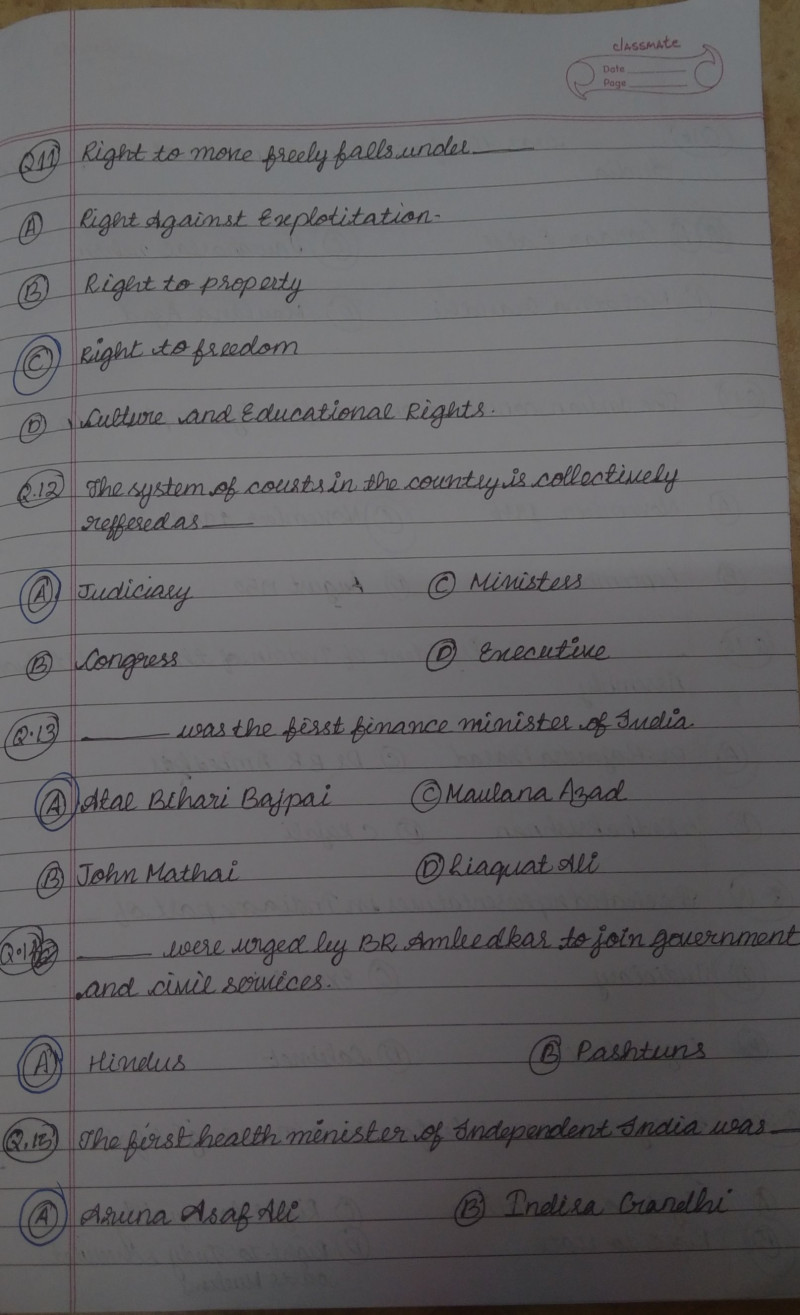 classmate
Date
Page
Q11 Right to move freely falls under
A Right Against Explotitation.
B Right to property
C Right to freedom
D Culture and Educational Rights.
Q.12 The system of courts in the country is collectively
reffered as
A Judiciary C Ministers
B Congress D Executive
Q.13 was the first finance minister of India
A Atal Bihari Bajpai C Maulana Azad
B John Mathai D Liaquat Ali
were urged by BR Ambedkar to join government
and civil services.
A Hindus B Pashtuns
Q.15 The first health minister of Independent India was
A Aruna Asaf Ali B Indira Gandhi